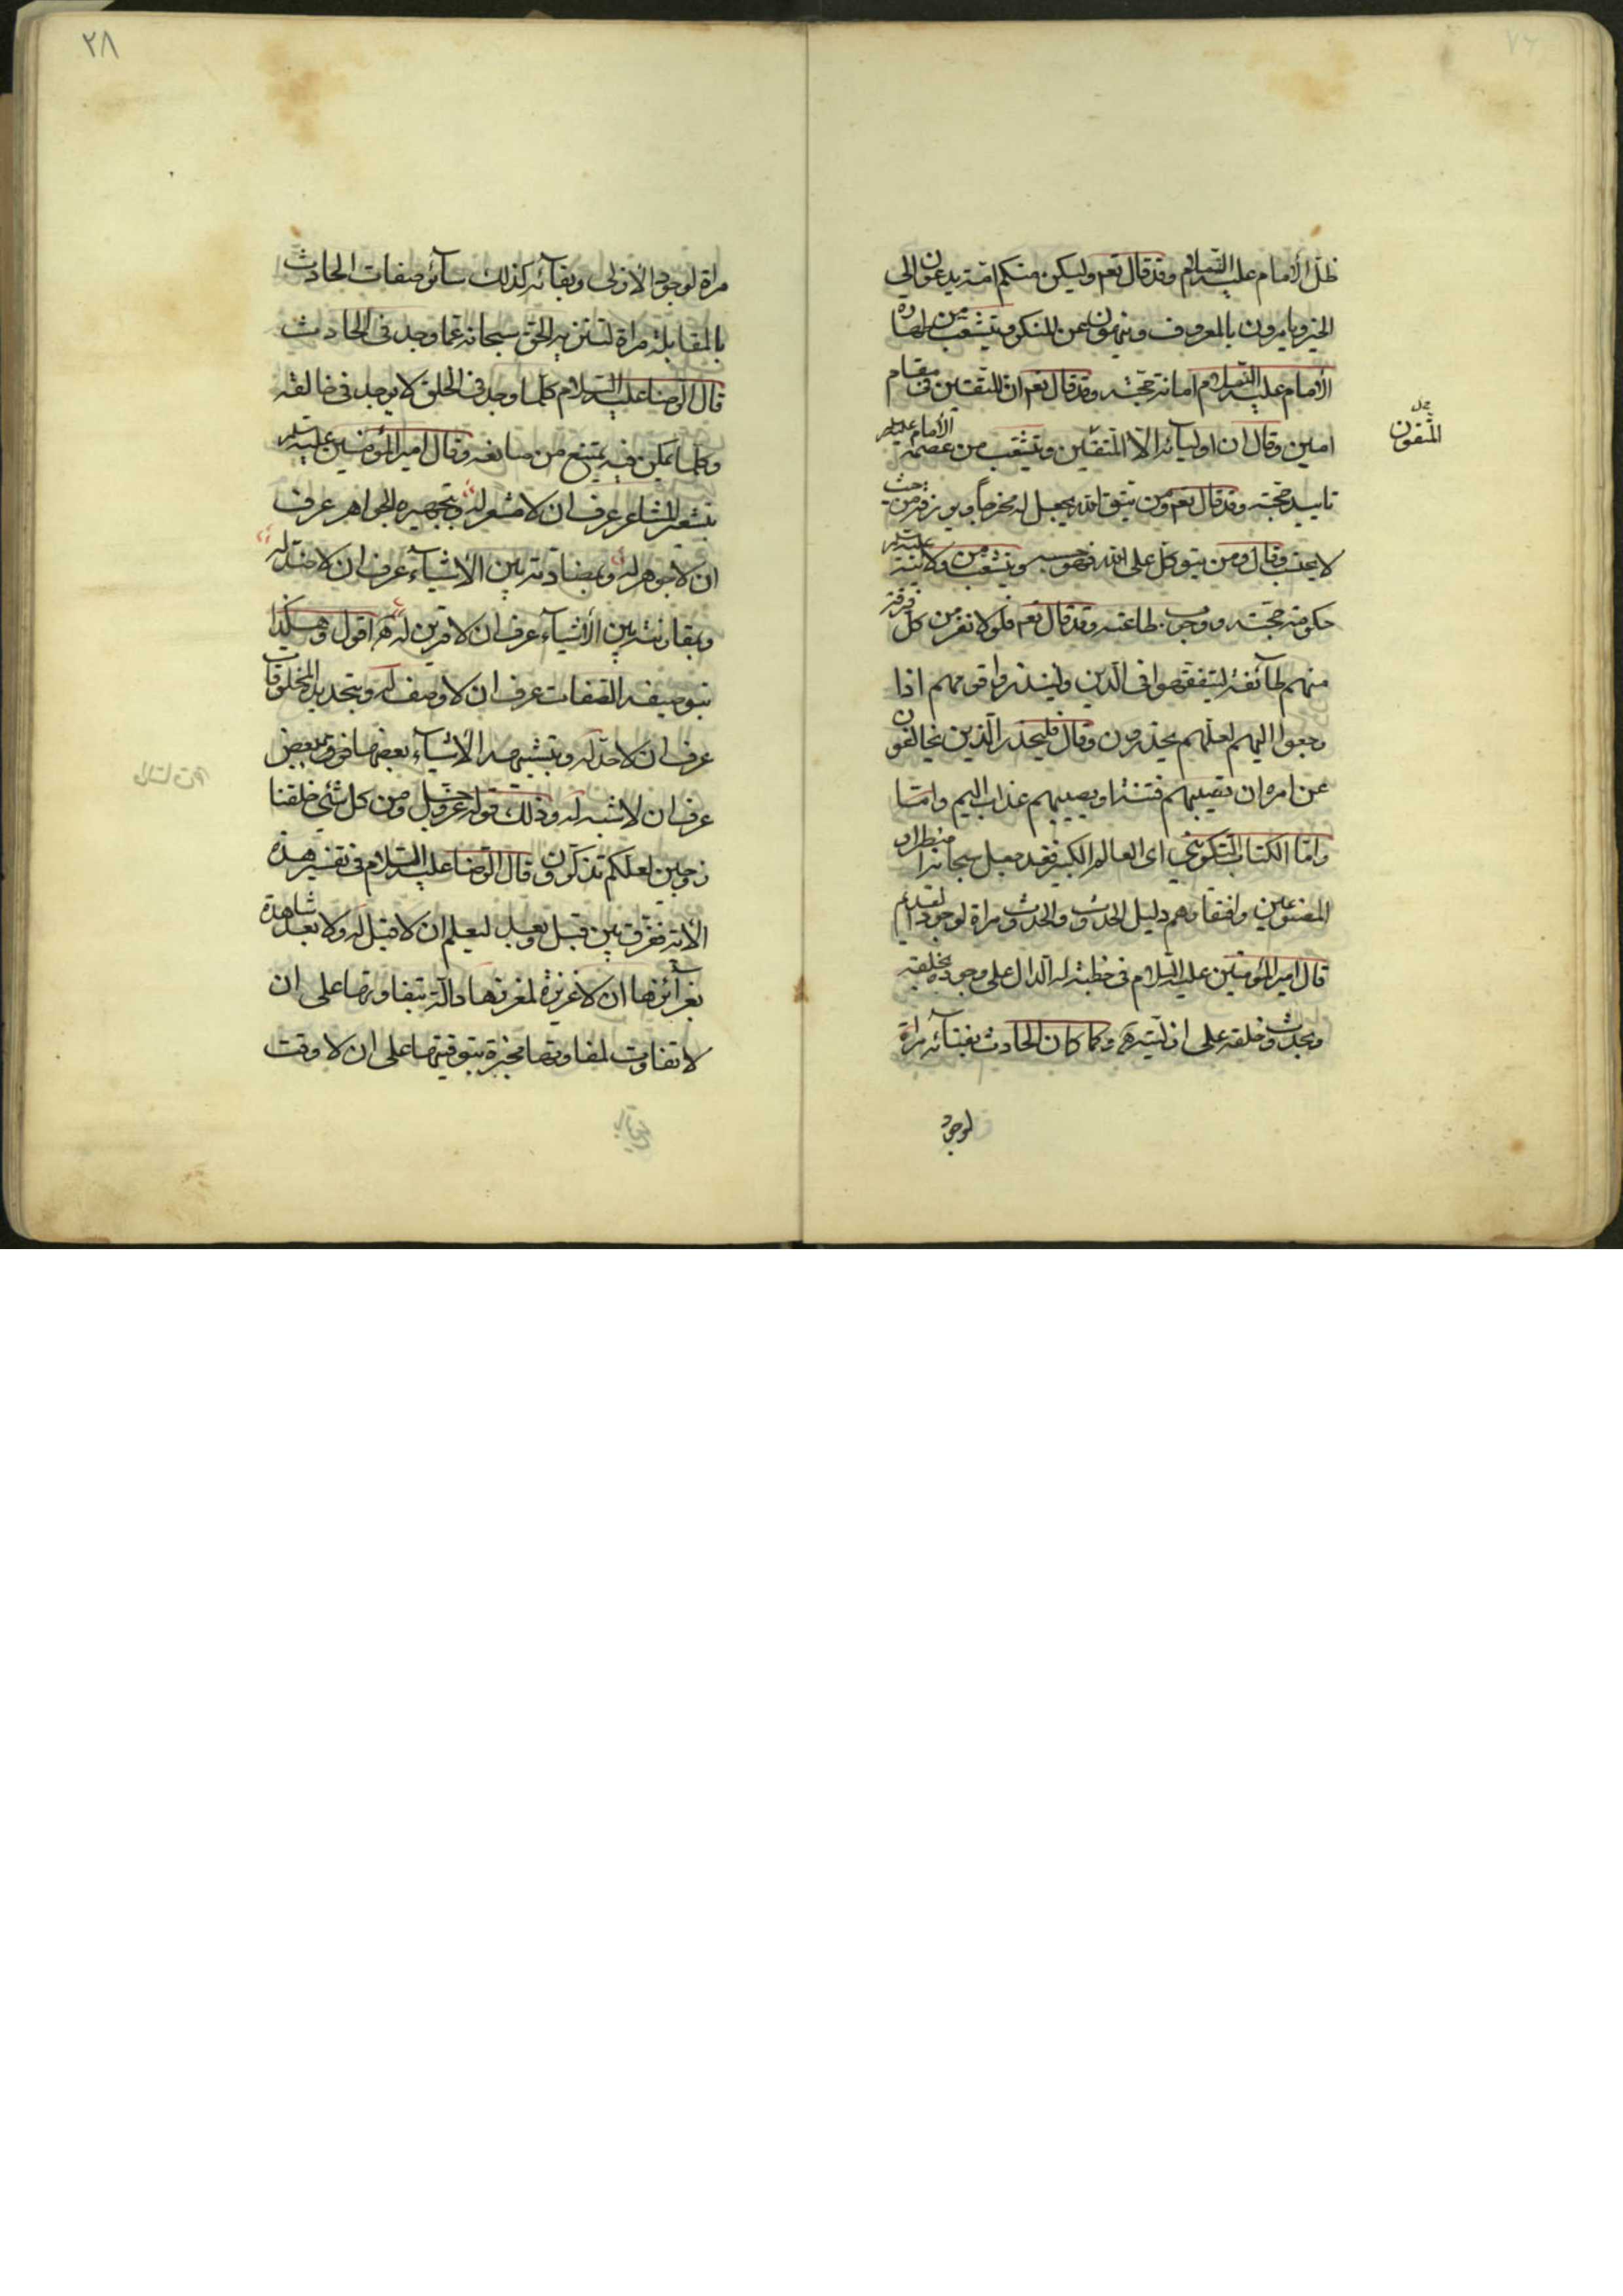 ظل الأمام عليه السلام وقد قال تعم وليكن منكم امة يدعون الى
الخير ويامرون بالمعروف وينهون عن المنكر ويتشعب من طهارة
الأمام عليه السلام امانة حجته وقد قال تعم ان المتقين فى مقام
امين وقال ان اوليآئه الا المتقين ويتشعب من عصمة الأمام عليه السلم
المتقون
تاييد حجته وقد قال تعم ومن يتق الله يجعل له مخرجا ويرزقه من حيث
لا يحتسب وقال ومن يتوكل على الله فهو حسبه ويتشعب من ولايته عليه السلم
حكومة حجته ووجوب طاعته وقد قال تعم فلولا نفر من كل فرقة
منهم طآئفة ليتفقهوا فى الدين ولينذروا قومهم اذا
رجعوا اليهم لعلهم يحذرون وقال فليحذر الذين يخالفون
عن امره ان تصيبهم فتنة او يصيبهم عذاب اليم وامتا
وامّا الكتاب التكوينى اى العالم الكبير فقد جعل سبحانه اضطرار
المصنوعين وافتقارهم دليل الحدوث والحدوث مراة لوجود القديم
قال امير المؤمنين عليه السلام فى خطبة له الدال على وجوده بخلقه
وبحدوث خلقه على ازليته وكما كان الحادث بفنآئه مراة
لوجود
٢٨
مراة لوجود الازلى وبقآئه كذلك سآئر صفات الحادث
بالمقابلة مراة لتنزيه الحق سبحانه عما وجد فى الحادث
قال الرضا عليه السلام كلما وجد فى الخلق لا يوجد فى خالقه
وكلما يمكن فيه يمتنع من صانعه وقال امير المؤمنين عليه السلم
بتشعيره المشاعر عرف ان لا مشعر له وبتجهيره الجواهر عرف
ان لا جوهر له وبمضادته بين الأشيآء عرف ان لا ضد له
وبمقارنته بين الأشيآء عرف ان لا قرين له اقول وهكذا
بتوصيفه الصفات عرف ان لا وصف له وبتحديده المخلوقات
عرف ان لا حد له وبتشبيهه الأشيآء بعضها فوق بعض
عرف ان لا شبه له وذلك قوله عز وجل ومن كل شئ خلقنا
زوجين لعلكم تذكرون وقال الرضا عليه السلام فى تفسير هذه
الأية ففرق بين قبل وبعد ليعلم ان لا قبل له ولا بعد شاهدة
بغرآئزها ان لا غريزة لمغرزها دالة بتفاوتها على ان
لا تفاوت لمفاوتها مخبرة بتوقيتها على ان لا وقت